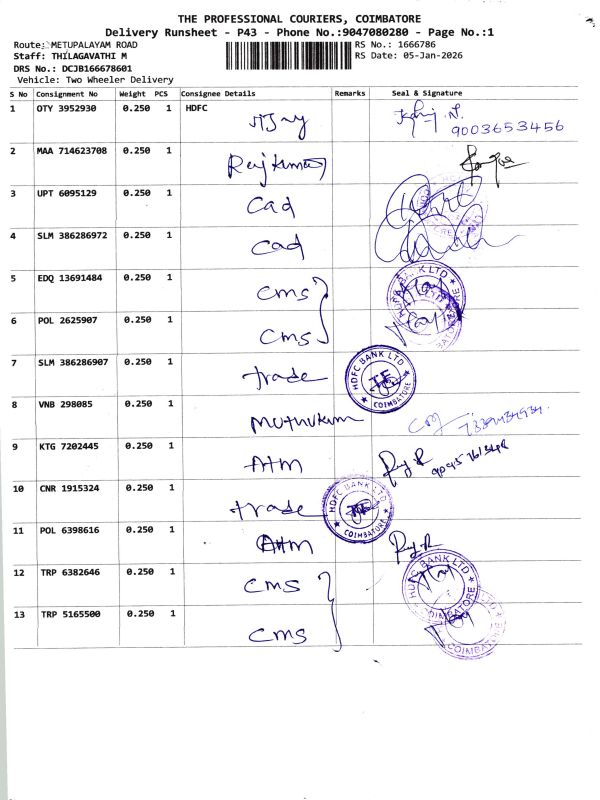 THE PROFESSIONAL COURIERS, COIMBATORE
Delivery Runsheet - P43 - Phone No.:9047080280 - Page No.:1
Route: METUPALAYAM ROAD
RS No.: 1666786
Staff: THILAGAVATHI M
RS Date: 05-Jan-2026
DRS No.: DCJB166678601
Vehicle: Two Wheeler Delivery
S No Consignment No Weight PCS Consignee Details Remarks Seal & Signature
1 OTY 3952930 0.250 1 HDFC
9003653456
2 MAA 714623708 0.250 1 Rajkumar
3 UPT 6095129 0.250 1 cad
4 SLM 386286972 0.250 1 cad
5 EDQ 13691484 0.250 1 cms
6 POL 2625907 0.250 1 cms
7 SLM 386286907 0.250 1 trade HDFC BANK LTD COIMBATORE
8 VNB 298085 0.250 1 Muthukum
9 KTG 7202445 0.250 1 Atm
10 CNR 1915324 0.250 1 trade HDFC BANK LTD COIMBATORE
11 POL 6398616 0.250 1 Atm
12 TRP 6382646 0.250 1 cms HDFC BANK LTD COIMBATORE
13 TRP 5165500 0.250 1 cms COIMBATORE